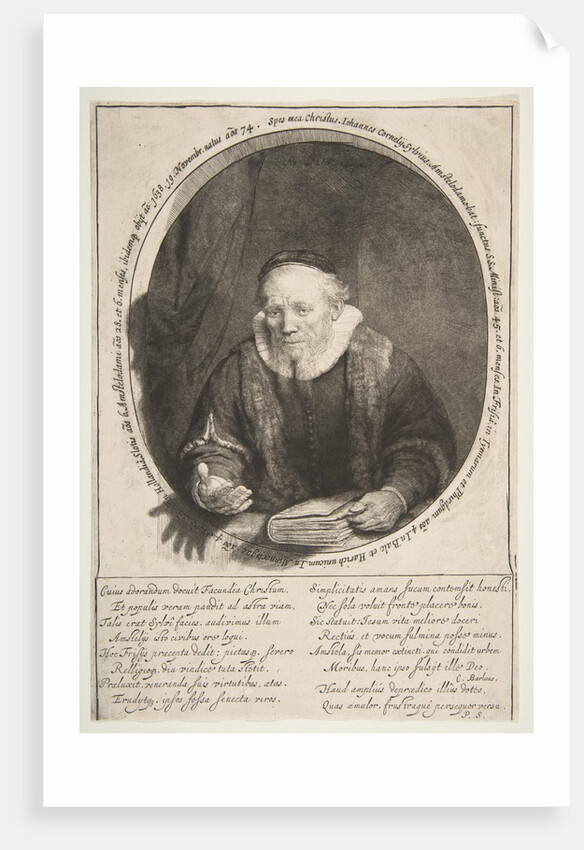 Spes mea Christus. Iohannes Cornelij Sylvius, Amstelodamobat: functus S.S. Minist: aos 45. et 6. menses. In Frisia in Tyemarum et Phirdgum aos 4. In Balc et Harich unicum. In Minnertsgae aos 4. in Hollandia, Slotis aos 6. Amstelodami aos 28. et 6. menses, ibidemq. obijt ao. 1638. 19. Novembr. natus aos 74.
Cuius adorandum docuit Facundia Christum,
Et populis veram pandit ad astra viam,
Talis erat Sylvi facies. audivimus illum
Amstelijs isto civibus ore loqui.
Hoc Frisijs præcepta dedit; pietasq. severo
Relligioq. diu vindice tuta stetit.
Præluxit, veneranda suis virtutibus, ætas.
Erudijtq. ipsos fessa senecta viros.
Simplicitatis amans fucum contemsit honesti,
Nec sola voluit fronte placere bonis.
Sic statuit: Jesum vita meliore doceri
Rectius, et vocum fulmina posse minus.
Amstela, sis memor extincti qui condidit urbem
Moribus, hanc ipso fulsijt ille Deo.
C. Barlæus.
Haud amplius deprædico illius dotes,
Quas æmulor, frustraque persequor versu.
P. S.